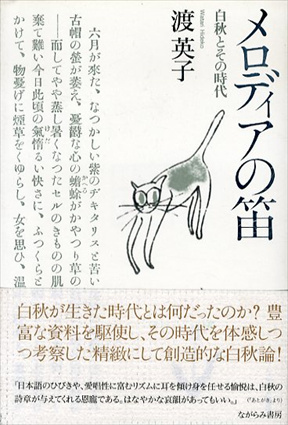 メロディアの笛
白秋とその時代
渡 英子
Watari Hideko
六月が來た、なつかしい紫のヂキタリスと苦い
古帽の薹が萎え、憂鬱な心の蟾蜍がかやつり草の
――而してやや蒸し暑くなつたセルのきものの肌
棄て難い今日此頃の氣惰るい快さに、ふつくらと
かけて、物憂げに煙草をくゆらし、女を思ひ、温
白秋が生きた時代とは何だったのか？ 豊
富な資料を駆使し、その時代を体感しつ
つ考察した精緻にして創造的な白秋論！
「日本語のひびきや、愛唱性に富むリズムに耳を傾け身を任せる愉悦は、白秋の
詩章が与えてくれる恩寵である。はなやかな哀韻があってもいい。」(「あとがき」より)
ながらみ書房